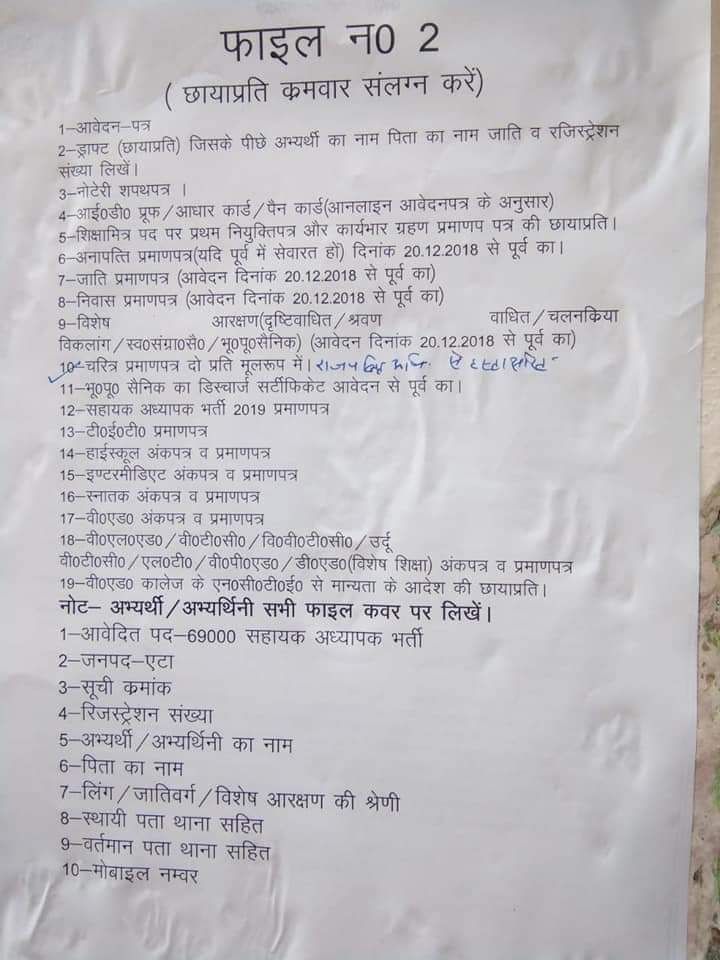 फाइल न0 2
( छायाप्रति कमवार संलग्न करें)
1–आवेदन–पत्र
2–ड्राफ्ट (छायाप्रति) जिसके पीछे अभ्यर्थी का नाम पिता का नाम जाति व रजिस्ट्रेशन
संख्या लिखें।
3–नोटेरी शपथपत्र ।
4–आई0डी0 प्रूफ/आधार कार्ड/पैन कार्ड(आनलाइन आवेदनपत्र के अनुसार)
5–शिक्षामित्र पद पर प्रथम नियुक्तिपत्र और कार्यभार ग्रहण प्रमाणप पत्र की छायाप्रति।
6–अनापत्ति प्रमाणपत्र(यदि पूर्व में सेवारत हों) दिनांक 20.12.2018 से पूर्व का।
7–जाति प्रमाणपत्र (आवेदन दिनांक 20.12.2018 से पूर्व का)
8–निवास प्रमाणपत्र (आवेदन दिनांक 20.12.2018 से पूर्व का)
9–विशेष आरक्षण(दृष्टिवाधित/श्रवण वाधित/चलनकिया
विकलांग/स्व0संग्रा0सै0/भू0पू0सैनिक) (आवेदन दिनांक 20.12.2018 से पूर्व का)
10–चरित्र प्रमाणपत्र दो प्रति मूलरूप में। से हस्ताक्षरित
11–भू0पू0 सैनिक का डिस्चार्ज सर्टीफिकेट आवेदन से पूर्व का।
12–सहायक अध्यापक भर्ती 2019 प्रमाणपत्र
13–टी0ई0टी0 प्रमाणपत्र
14–हाईस्कूल अंकपत्र व प्रमाणपत्र
15–इण्टरमीडिएट अंकपत्र व प्रमाणपत्र
16–स्नातक अंकपत्र व प्रमाणपत्र
17–वी0एड0 अंकपत्र व प्रमाणपत्र
18–वी0एल0एड0/वी0टी0सी0/वि0वी0टी0सी0/उर्दू
वी0टी0सी0/एल0टी0/वी0पी0एड0/डी0एड0(विशेष शिक्षा) अंकपत्र व प्रमाणपत्र
19–वी0एड0 कालेज के एन0सी0टी0ई0 से मान्यता के आदेश की छायाप्रति।
नोट– अभ्यर्थी/अभ्यर्थिनी सभी फाइल कवर पर लिखें।
1–आवेदित पद–69000 सहायक अध्यापक भर्ती
2–जनपद–एटा
3–सूची कमांक
4–रिजस्ट्रेशन संख्या
5–अभ्यर्थी/अभ्यर्थिनी का नाम
6–पिता का नाम
7–लिंग/जातिवर्ग/विशेष आरक्षण की श्रेणी
8–स्थायी पता थाना सहित
9–वर्तमान पता थाना सहित
10–मोबाइल नम्वर